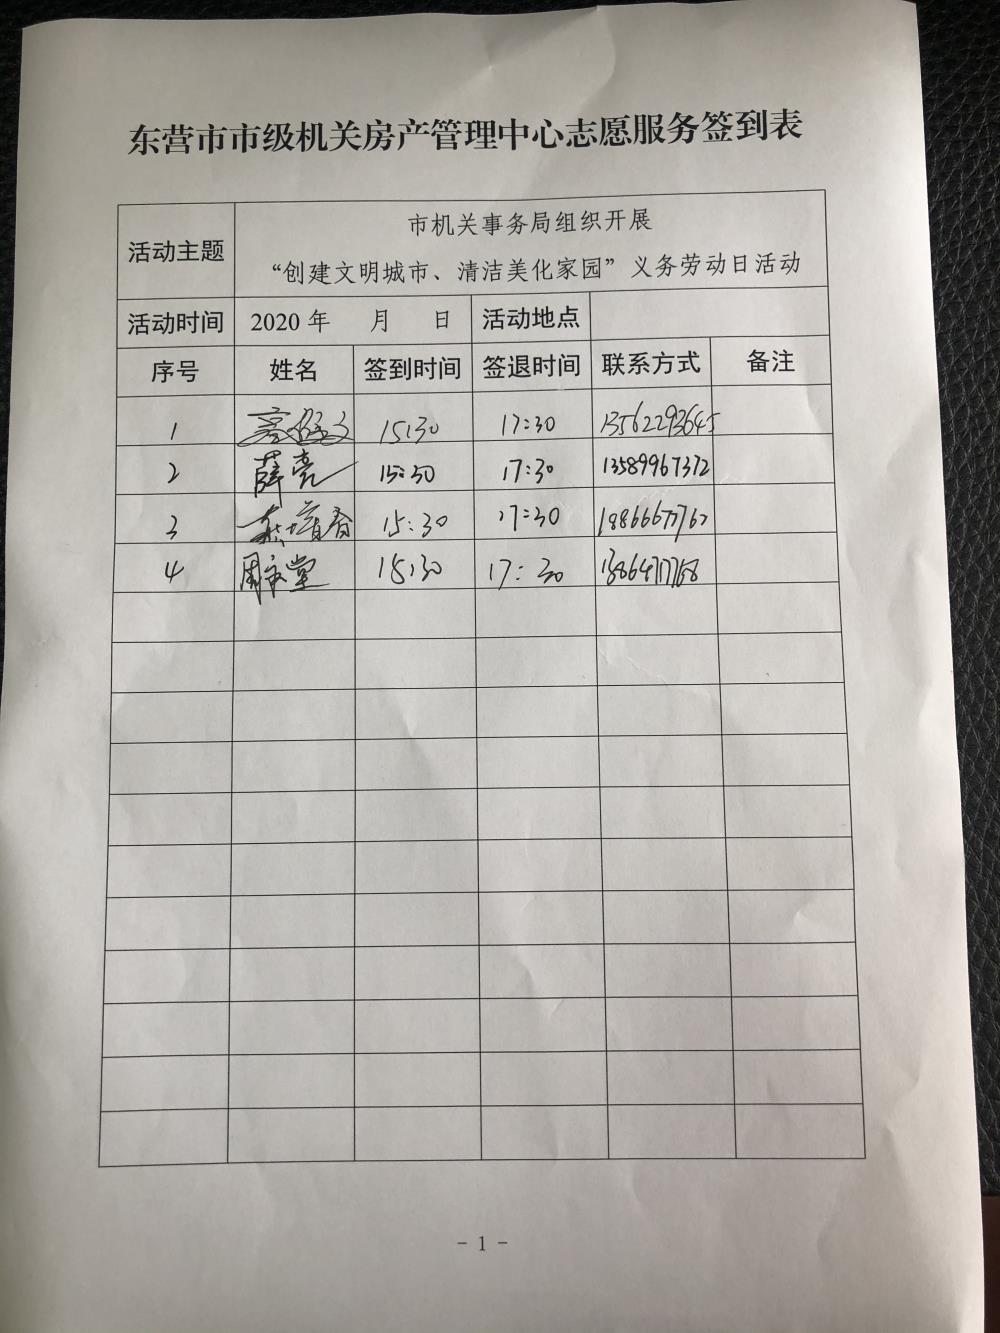 东营市市级机关房产管理中心志愿服务签到表
活动主题 市机关事务局组织开展
“创建文明城市、清洁美化家园”义务劳动日活动
活动时间 2020 年 月 日 活动地点
序号 姓名 签到时间 签退时间 联系方式 备注
1 15:30 17:30 13562293645
2 薛亮 15:30 17:30 13589967372
3 15:30 17:30
4 15:30 17:30
- 1 -